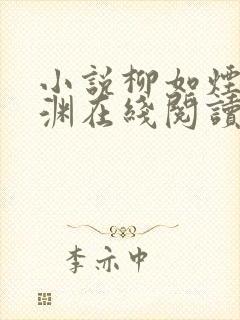 小說柳如煙
渊在綫閱讀
李亦中